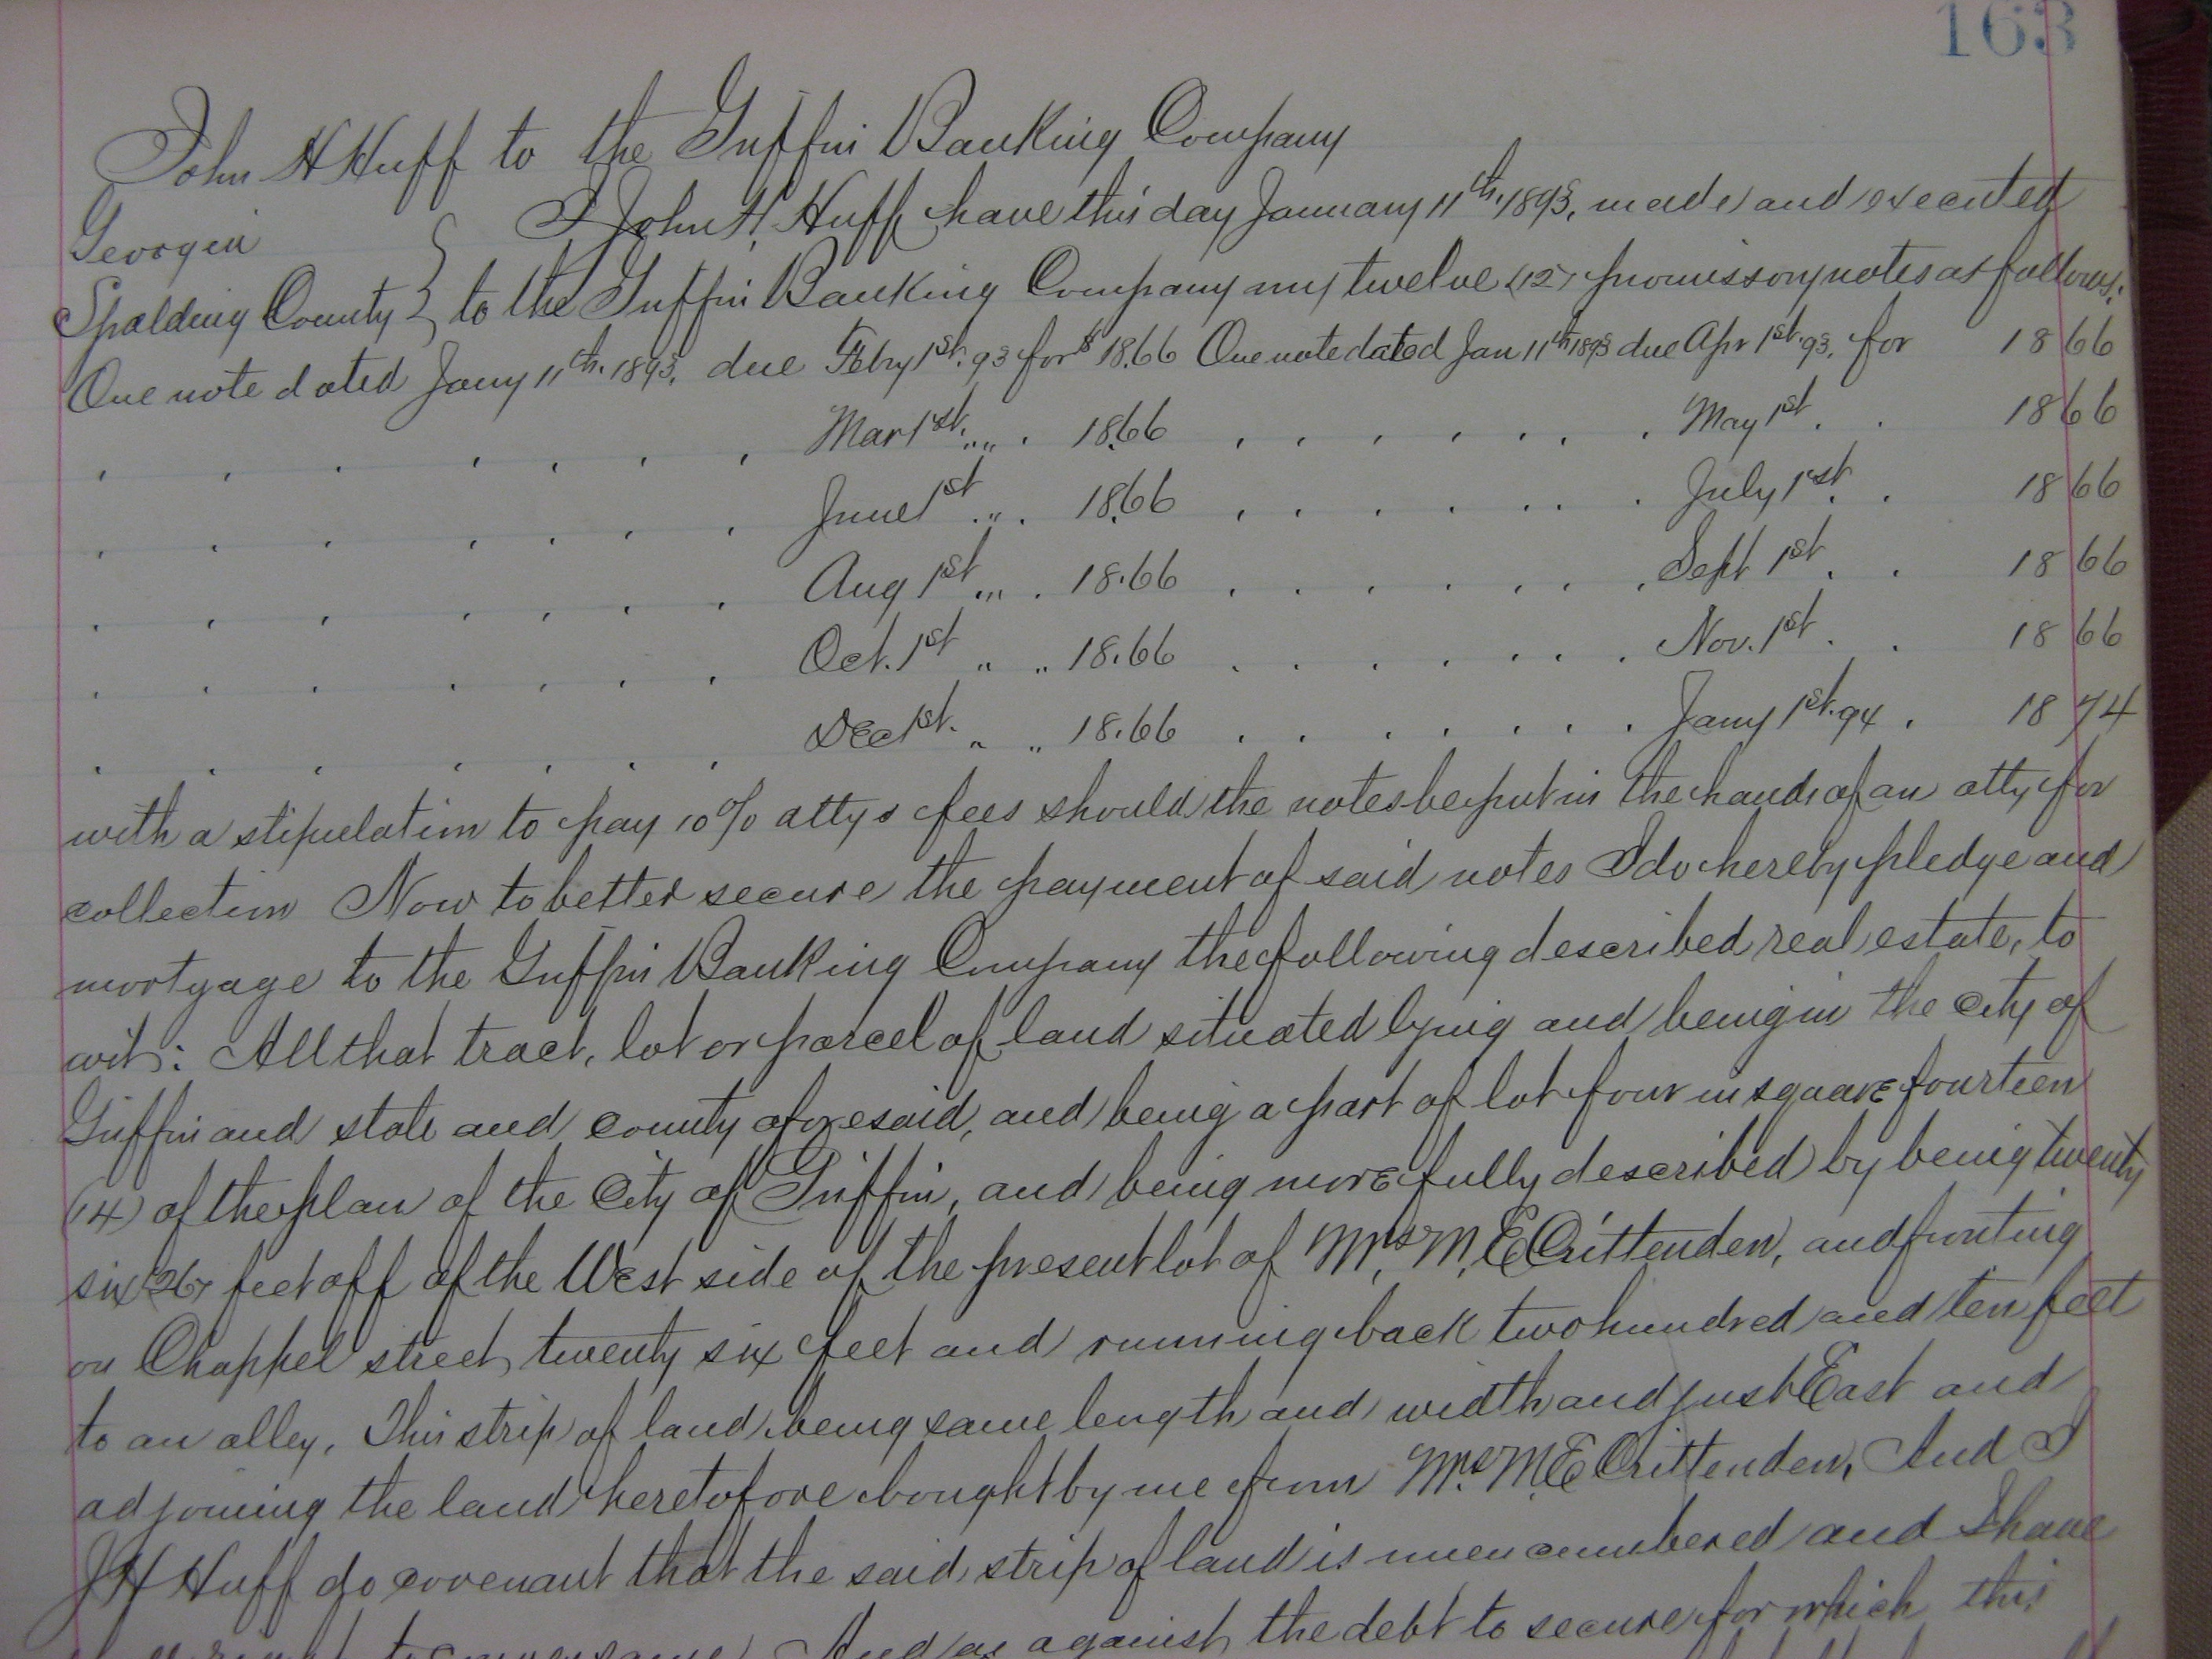 163
John H Huff to the Griffin Banking Company
Georgia
I John H. Huff have this day January 11th. 1893, made and executed
Spalding County } to the Griffin Banking Company my twelve (12) promissory notes as follows:
One note dated Jany 11th. 1893, due Feby 1st. 93 for $ 18.66 One note dated Jan 11th 1893 due Apr 1st. 93, for 18 66
, , , , , , , Mar 1st. „ „ . 18.66 , , , , , , , May 1st . . 18 66
, , , , , , , June 1st . „ . 18.66 , . . . . . . July 1st. . 18 66
. , , , , , , Aug 1st „ . 18.66 . . . . , , , Sept 1st . . 18 66
. . . . . . , Oct. 1st „ „ 18.66 . . . . . . . Nov. 1st . . 18 66
. . . . . . . Dec 1st. „ „ 18.66 . . . . . . . Jany 1st. 94 . 18 74
with a stipulation to pay 10% attys fees should the notes be put in the hands of an atty for
collection Now to better secure the payment of said notes I do hereby pledge and
mortgage to the Griffin Banking Company the following described real estate, to
wit: All that tract, lot or parcel of land situated lying and being in the city of
Griffin and state and county aforesaid, and being a part of lot four in square fourteen
(14) of the plan of the City of Griffin, and being more fully described by being twenty
six (26) feet off of the West side of the present lot of Mrs. M. E Crittenden, and fronting
on Chappel street twenty six feet and running back two hundred and ten feet
to an alley, This strip of land being same length and width and just East and
adjoining the land heretofore bought by me from Mrs. M. E Crittenden, And I
J H Huff do covenant that the said strip of land is unencumbered and I have
right to convey same And as against the debt to secure for which this